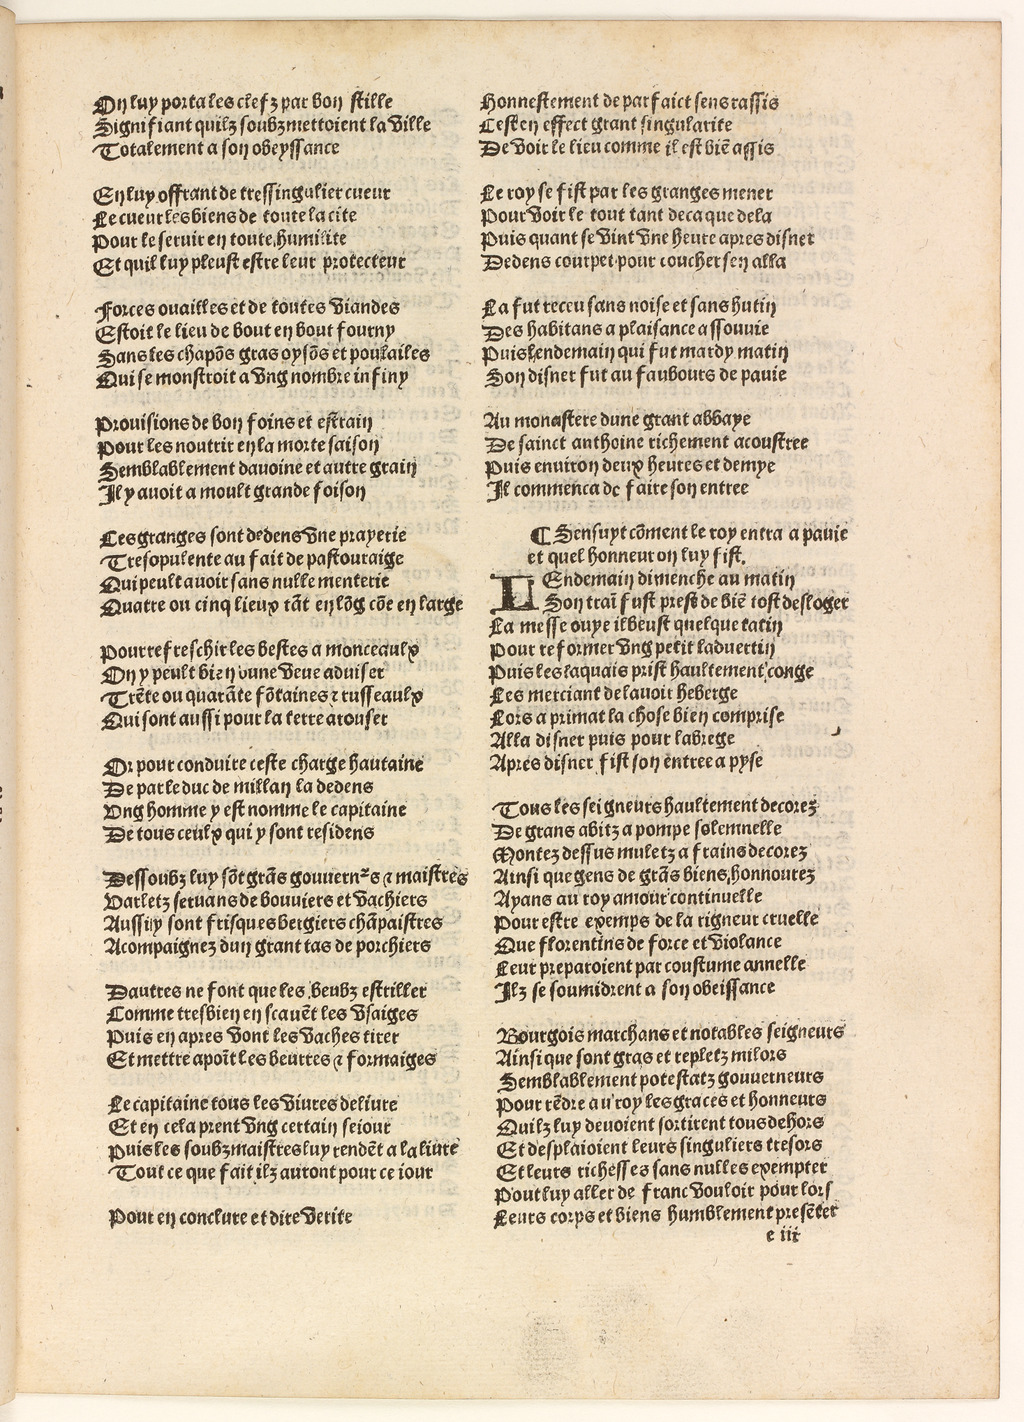 On luy porta les clefz par bon stille
Signifiant quilz soubzmettoient la ville
Totalement a son obeyssance
En luy offrant de tressingulier cueur
Le cueur les biens de toute la cite
Pour le seruir en toute humilite
Et quil luy pleust estre leur protecteur
Forces ouailles et de toutes viandes
Estoit le lieu de bout en bout fourny
Sans les chapõs gras oysõs et poulailes
Qui se monstroit a vng nombre infiny
Prouisions de bon foins et estrain
Pour les nourrir en la morte saison
Semblablement dauoine et autre grain
Il y auoit a moult grande foison
Ces granges sont dedens vne prayerie
Tresopulente au fait de pastouraige
Qui peult auoir sans nulle menterie
Quatre ou cinq lieux tãt en lõg cõe en large
Pour refreschir les bestes a monceaulx
On y peult bien dune veue aduiser
Trẽte ou quarãte fõtaines ⁊ russeaulx
Qui sont aussi pour la terre arouser
Or pour conduire ceste charge haultaine
De par le duc de millan la dedens
Vng homme y est nomme le capitaine
De tous ceulx qui y sont residens
Dessoubz luy sõt grãs gouuernᵉˢ ⁊ maistres
Varletz seruans de bouuiers et vachiers
Aussi y sont frisques bergiers chãpaistres
Acompaignez dun grant tas de porchiers
Dautres ne font que les beubz estriller
Comme tresbien en scauẽt les vsaiges
Puis en apres vont les vaches tirer
Et mettre apoĩt les beurres ⁊ formaiges
Le capitaine tous les viures deliure
Et en cela prent vng certain seiour
Puis les soubzmaistres luy rendẽt a la liure
Tout ce que fait ilz auront pour ce iour
Pour en conclure et dire verite
Honnestement de parfaict sens rassis
Cest en effect grant singularite
De voir le lieu comme il est biẽ assis
Le roy se fist par les granges mener
Pour voir le tout tant deca que dela
Puis quant se vint vne heure apres disner
Dedens courpet pour coucher sen alla
La fut receu sans noise et sans hutin
Des habitans a plaisance assouuie
Puis lendemain qui fut mardy matin
Son disner fut au faubours de pauie
Au monastere dune grant abbaye
De sainct anthoine richement acoustree
Puis enuiron deux heures et demye
Il commenca de faire son entree
¶ Sensuyt cõment le roy entra a pauie
et quel honneur on luy fist.
LEndemain dimenche au matin
Son traĩ fust prest de biẽ tost desloger
La messe ouye il beust quelque tatin
Pour reformer vng petit laduertin
Puis les laquais prist haultement conge
Les merciant de lauoir heberge
Lors a primat la chose bien comprise
Alla disner puis pour labrege
Apres disner fist son entree a pyse
Tous les seigneurs haultement decorez
De grans abitz a pompe solemnelle
Montez dessus muletz a frains decorez
Ainsi que gens de grãs biens honnourez
Ayans au roy amour continuelle
Pour estre exemps de la rigueur cruelle
Que florentins de force et violance
Leur preparoient par coustume annelle
Ilz se soumidrent a son obeissance
Bourgois marchans et notables seigneurs
Ainsi que sont gras et repletz milors
Semblablement potestatz gouuerneurs
Pour rẽdre au roy les graces et honneurs
Quilz luy deuoient sortirent tous dehors
Et desplaioient leurs singuliers tresors
Et leurs richesses sans nulles exempter
Pour luy aller de franc vouloir pour lors
Leurs corps et biens humblement presẽter
e iii